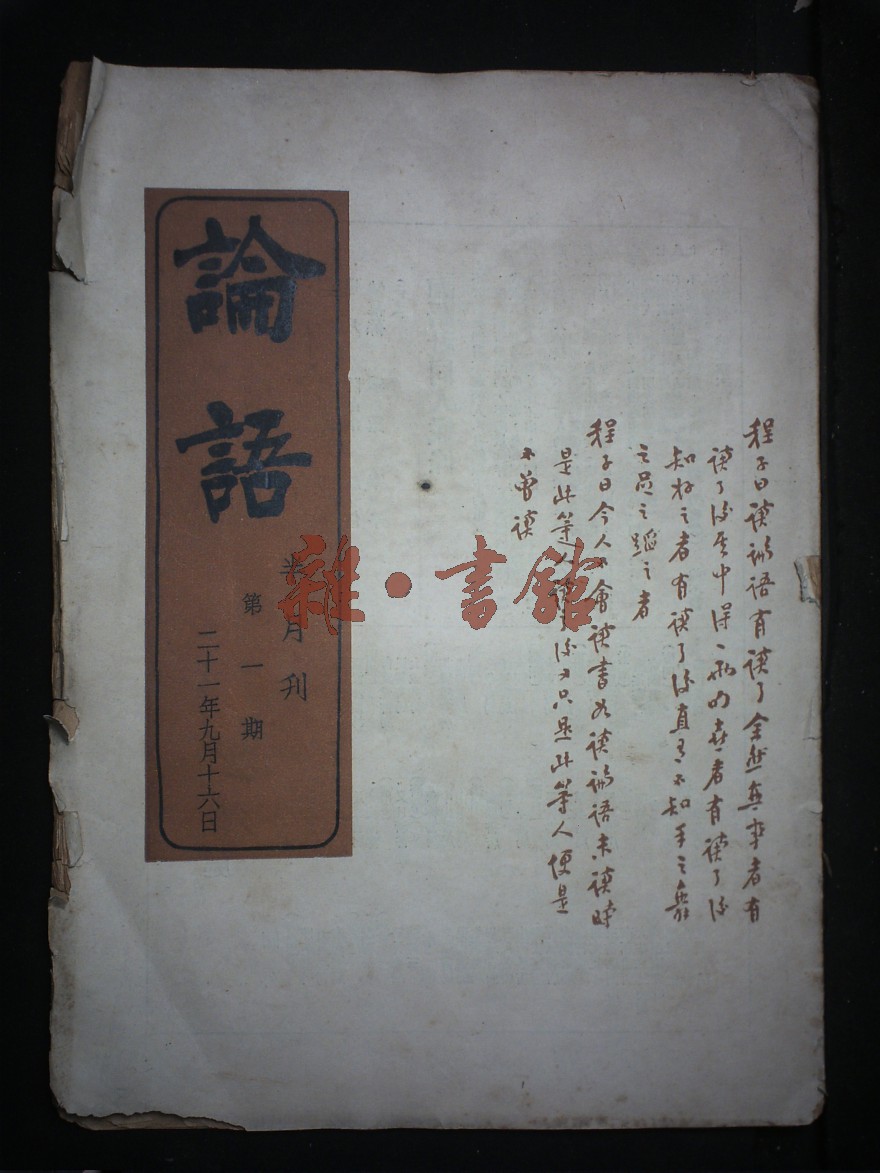 程子曰讀論語有讀了全然無事者有
讀了後其中得一兩句喜者有讀了後
知好之者有讀了後直有不知手之舞
之足之蹈之者
程子曰今人不會讀書如讀論語未讀時
是此等人讀了後又只是此等人便是
不曾讀
論語
半月刊
第一期
二十一年九月十六日
雜·書館